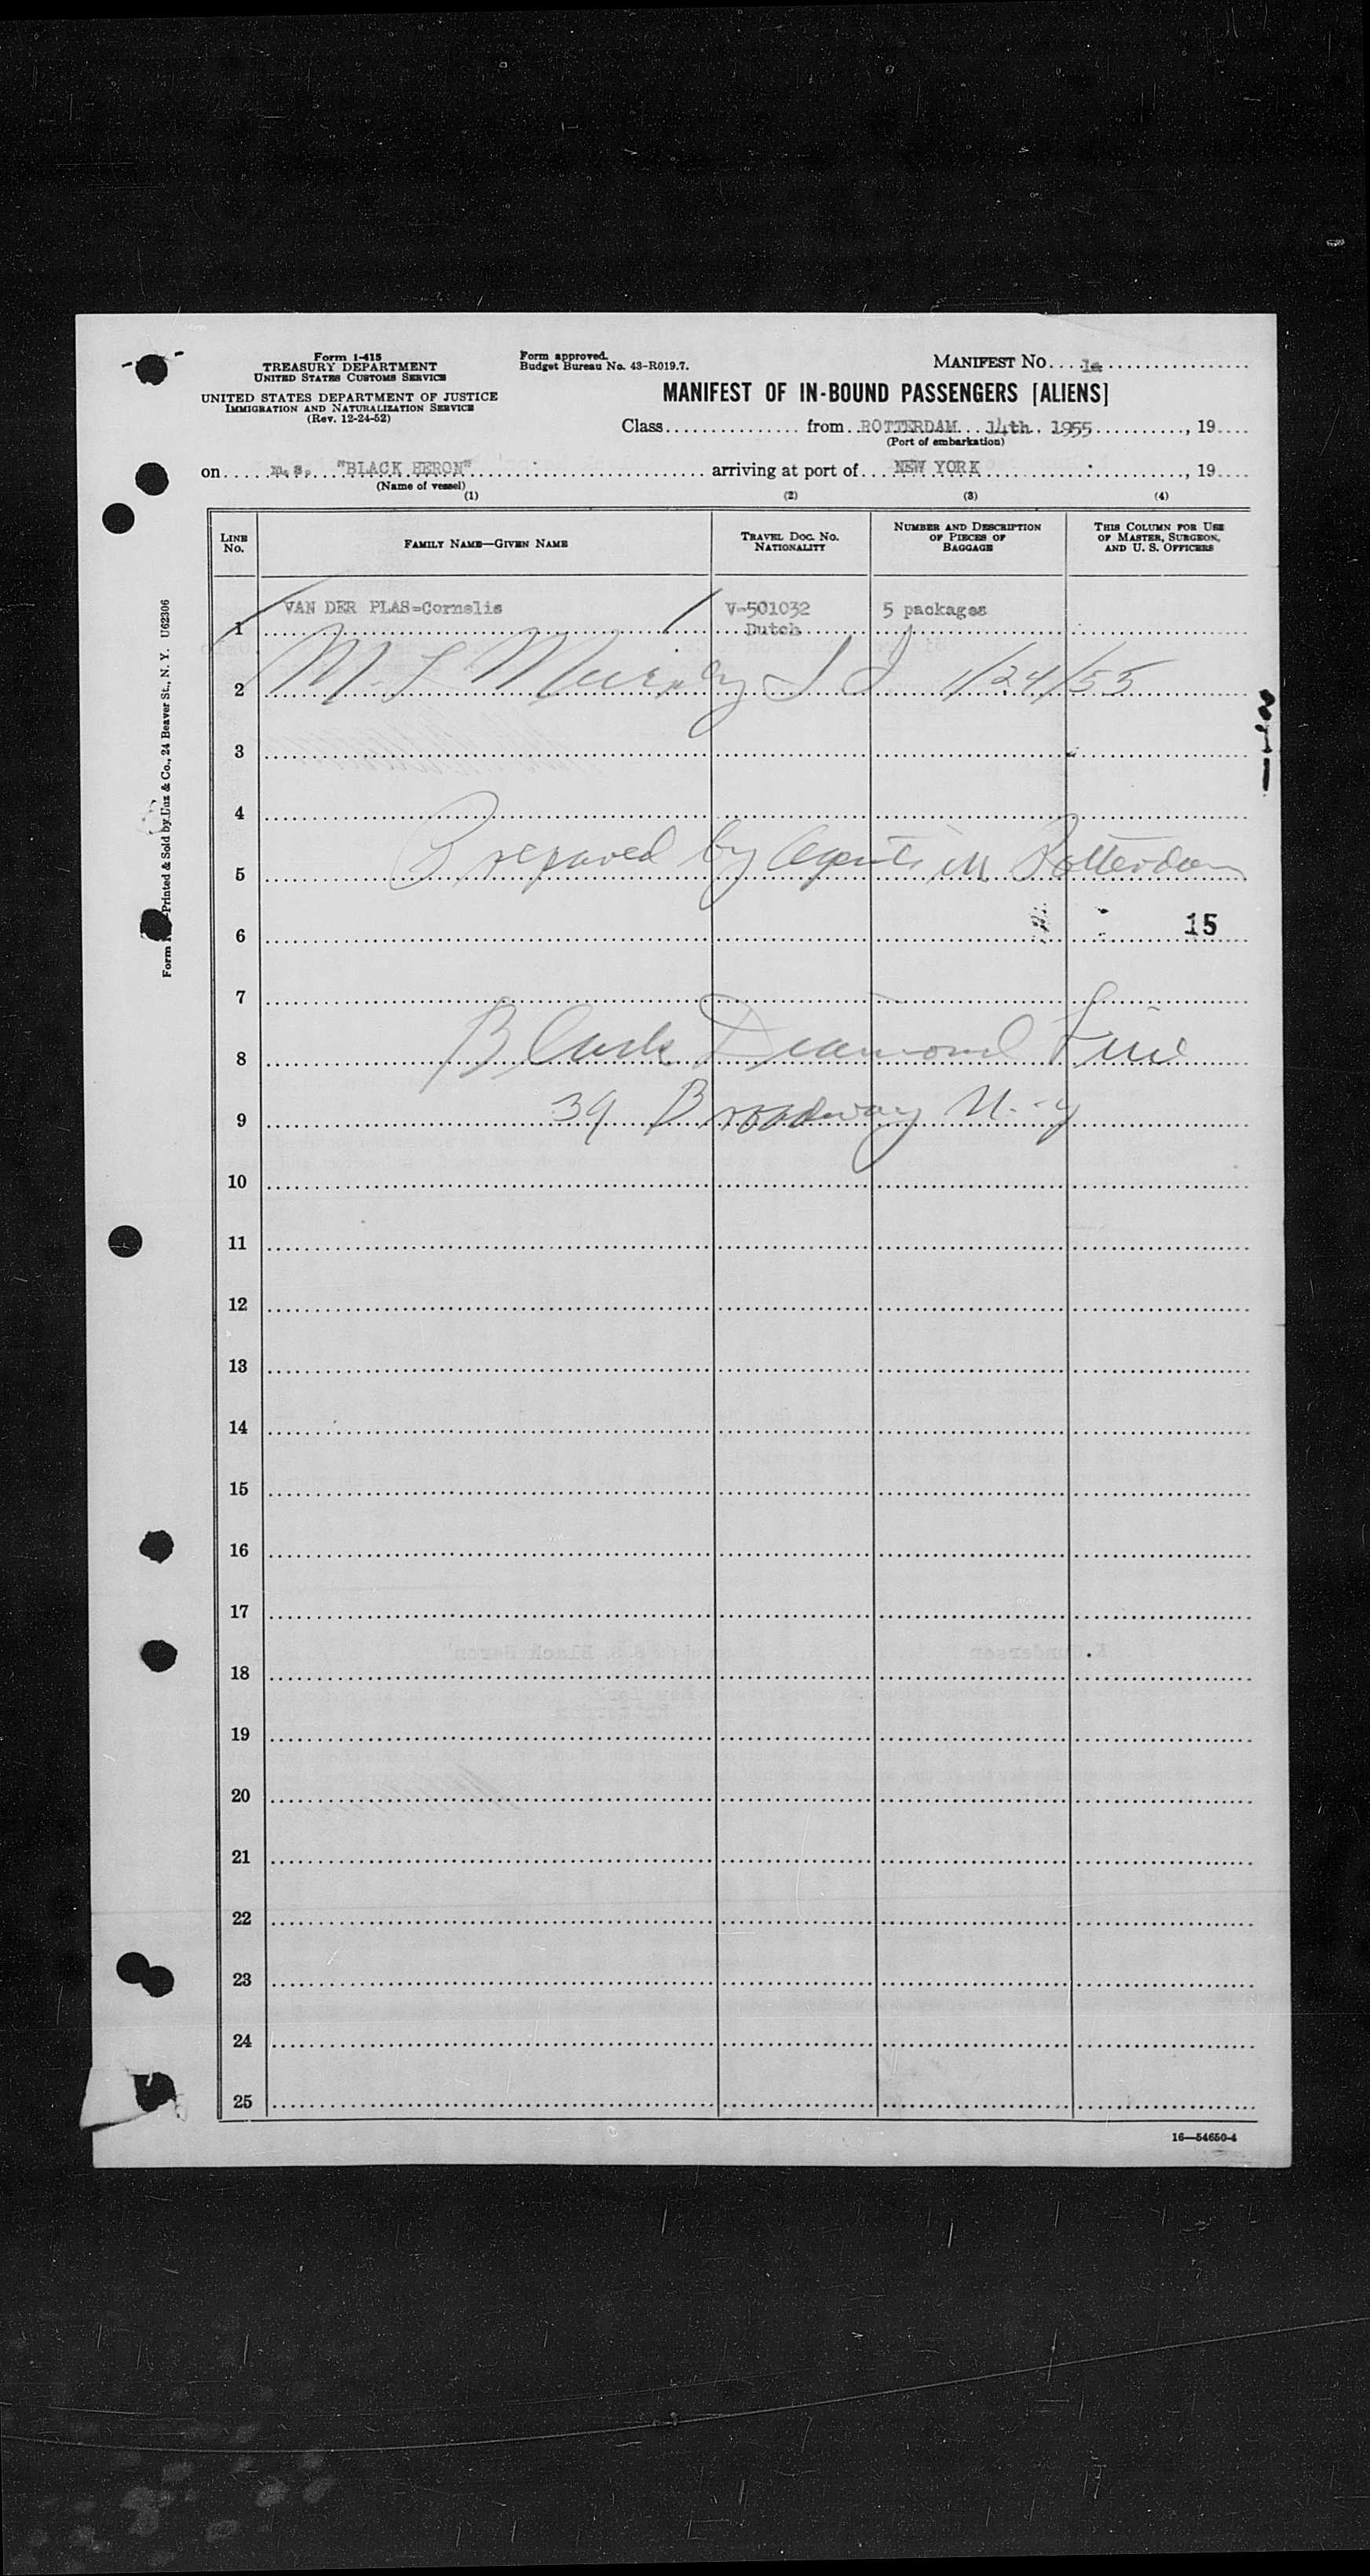 Form I-415
TREASURY DEPARTMENT
UNITED STATES CUSTOMS SERVICE
UNITED STATES DEPARTMENT OF JUSTICE
IMMIGRATION AND NATURALIZATION SERVICE
(Rev. 12-24-52)
Form approved.
Budget Bureau No. 43-R019.7.
MANIFEST No. 1a
MANIFEST OF IN-BOUND PASSENGERS [ALIENS]
Class from ROTTERDAM 14th. 1955, 19
(Port of embarkation)
on m.s. "BLACK HERON" arriving at port of NEW YORK, 19
(Name of vessel)
(1) (2) (3) (4)
LINE No. FAMILY NAME—GIVEN NAME TRAVEL DOC. NO. NATIONALITY NUMBER AND DESCRIPTION OF PIECES OF BAGGAGE THIS COLUMN FOR USE OF MASTER, SURGEON, AND U. S. OFFICERS
1 VAN DER PLAS=Cornelis V-501032 5 packages
Dutch
2 M. L Murphy 1/24/55
3
4
5 Prepared by Agents in Rotterdam
6 15
7
8 Black Diamond Line
9 39 Broadway N.Y
10
11
12
13
14
15
16
17
18
19
20
21
22
23
24
25
16—54650-4
Printed & Sold by Unz & Co., 24 Beaver St., N. Y. U62306